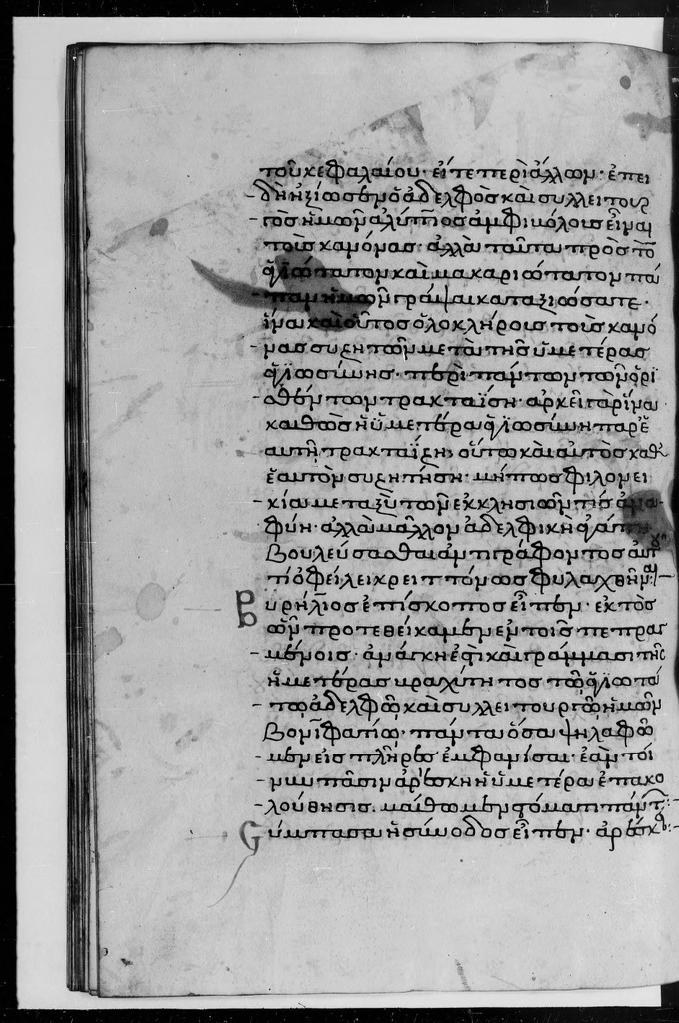 τοῦ κεφαλαίου· εἴτε περὶ ἄλλων· ἐπει
δὴ ἠξίωσεν ὁ ἀδελφὸς καὶ συλλειτουρ
γὸς ἡμῶν ἀλύπιος ἀμφιβόλους εἶναι
τοὺς κανόνας· ἀλλὰ ταῦτα πρὸς τὸν
ἁγιώτατον καὶ μακαριώτατον πά
παν ἡμῶν γράψαι καταξιώσατε·
ἵνα καὶ οὗτος ὁλοκλήρους τοὺς κανό
νας συζητῶν μετὰ τῆς ὑμετέρας
ἁγιωσύνης· περὶ πάντων τῶν ὁρι
σθέντων τρακταΐση· ἀρκεῖ γὰρ ἵνα
καθὼς ἡ ὑμετέρα ἁγιωσύνη παρ' ἑ
αυτῇ τρακταΐζει· οὕτω καὶ αὐτὸς καθ'
ἑαυτὸν συζητήσῃ· μήπως φιλονει
κία μεταξὺ τῶν ἐκκλησιῶν τίς ἀνα
φύῃ· ἀλλὰ μᾶλλον ἀδελφικῇ ἀγάπῃ
βουλεύσασθαι ἀντιγράφοντος αὐτοῦ
τί ὀφείλει κρειττόνως φυλαχθῆναι
αυρήλιος ἐπίσκοπος εἶπεν· ἐκτὸς
ὧν προτεθείκαμεν ἐν τοῖς πεπραγ
μένοις· ἀνάγκη ἐστὶ καὶ γράμμασι τῆς
ἡμετέρας βραχύτητος τῷ ἁγιωτά
τῳ ἀδελφῷ καὶ συλλειτουργῷ ἡμῶν
βονιφατίῳ· πάντα ὅσα ψηλαφῶ
μεν εἰς πλῆρες ἐμφανίσαι· ἐὰν τοί
νυν πᾶσιν ἀρέσκῃ ἡ ὑμετέρα ἐπακο
λούθησις· μάθωμεν στόματι πάντων:
Σύμπασα ἡ σύνοδος εἶπεν· ἀρέσκει: